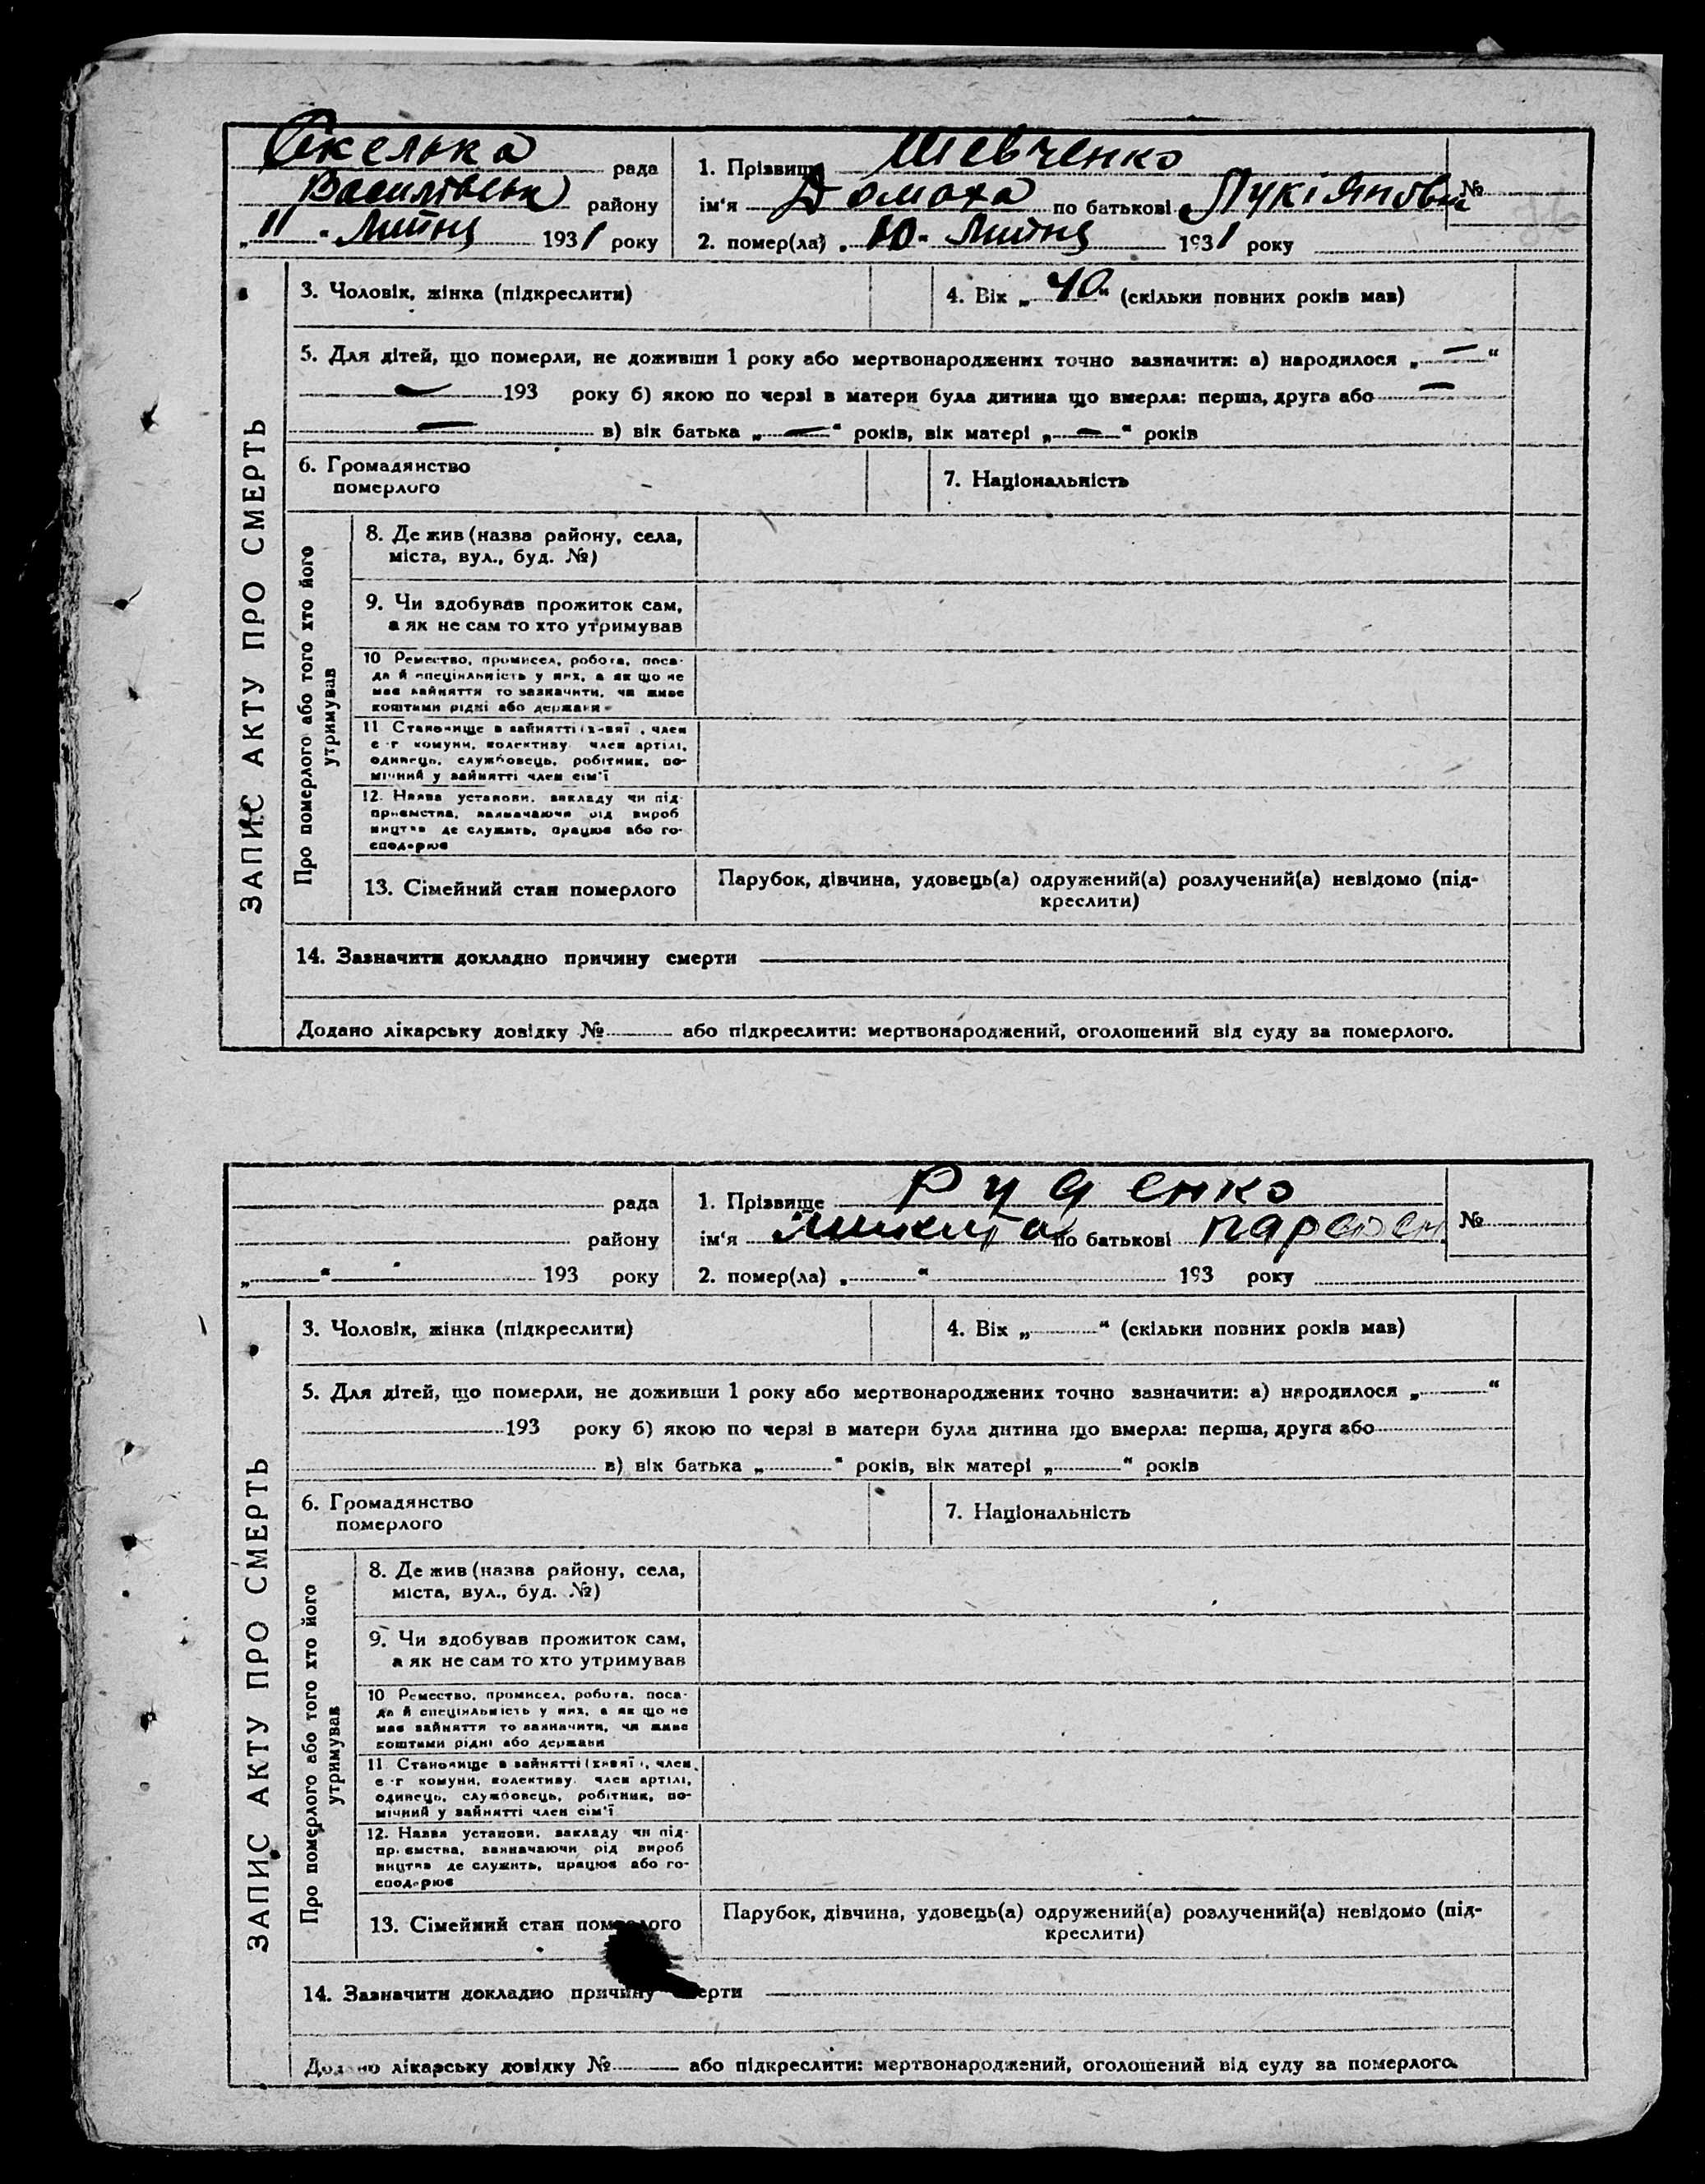 Скелька рада
Василівськ району
„11“ Липня 1931 року
1. Прізвище Шевченко
ім‘я Домаха по батькові Лукіянов
№
2. помер(ла) „10“ Липня 1931 року
ЗАПИС АКТУ ПРО СМЕРТЬ
3. Чоловік, жінка (підкреслити)
4. Вік „40“ (скільки повних років мав)
5. Для дітей, що померли, не доживши 1 року або мертвонароджених точно зазначити: а) народилося „—“
— 193 року б) якою по черзі в матери була дитина що вмерла: перша, друга або —
— в) вік батька „—“ років, вік матері „—“ років
6. Громадянство
померлого
7. Національність
Про померлого або того хто його
утримував
8. Де жив (назва району, села,
міста, вул., буд. №)
9. Чи здобував прожиток сам,
а як не сам то хто утримував
10 Ремество, промисел, робота, поса-
да й спеціяльність у них, а як що не
має зайняття то зазначити, чи живе
коштами рідні або держави
11 Становище в зайнятті (х-вяї, член
с-г комуни, колективу, член артілі,
одинець, службовець, робітник, по-
мічний у зайнятті член сім'ї
12. Назва установи, закладу чи під-
приємства, зазначаючи рід вироб
ництва де служить, працює або го-
сподарює
13. Сімейний стан померлого
Парубок, дівчина, удовець(а) одружений(а) розлучений(а) невідомо (під-
креслити)
14. Зазначити докладно причину смерти
Додано лікарську довідку № або підкреслити: мертвонароджений, оголошений від суду за померлого.
рада
району
„ “ 193 року
1. Прізвище Руденко
ім‘я Микита по батькові
№
2. помер(ла) „ “ 193 року
ЗАПИС АКТУ ПРО СМЕРТЬ
3. Чоловік, жінка (підкреслити)
4. Вік „ “ (скільки повних років мав)
5. Для дітей, що померли, не доживши 1 року або мертвонароджених точно зазначити: а) народилося „ “
193 року б) якою по черзі в матери була дитина що вмерла: перша, друга або
в) вік батька „ “ років, вік матері „ “ років
6. Громадянство
померлого
7. Національність
Про померлого або того хто його
утримував
8. Де жив (назва району, села,
міста, вул., буд. №)
9. Чи здобував прожиток сам,
а як не сам то хто утримував
10 Ремество, промисел, робота, поса-
да й спеціяльність у них, а як що не
має зайняття то зазначити, чи живе
коштами рідні або держави
11 Становище в зайнятті (х-вяї, член
с-г комуни, колективу, член артілі,
одинець, службовець, робітник, по-
мічний у зайнятті член сім'ї
12. Назва установи, закладу чи під-
приємства, зазначаючи рід вироб
ництва де служить, працює або го-
сподарює
13. Сімейний стан померлого
Парубок, дівчина, удовець(а) одружений(а) розлучений(а) невідомо (під-
креслити)
14. Зазначити докладно причину смерти
Додано лікарську довідку № або підкреслити: мертвонароджений, оголошений від суду за померлого.